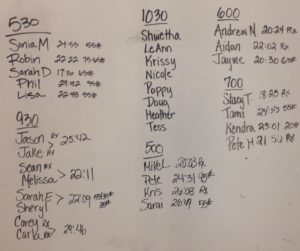 530
Sonia M 24:55 55#
Robin 22:22 75/65#
Sarah D 17:16 65#
Phil 29:52 95#
Lisa 22:58 55#
930
Jason Rx
Jake Rx > 25:42
Sean Rx
Melissa > 22:11
Sarah E
Sheryl > 22:09 35#
Corey Rx
Carla Rx > 29:46
1030
Shwetha
LeAnn
Krissy
Nicole
Poppy
Doug
Heather
Tess
500
Mike L. 20:03 Rx
Pete 24:31 95#
Kris 26:08 Rx
Sarai 26:49 55#
600
Andrew M. 20:24 Rx
Aidan 22:02 Rx
Jayme 20:30 65#
700
Stacy T 18:23 Rx
Tami 24:33 55#
Kendra 23:01 20#
Pete H 21:50 Rx